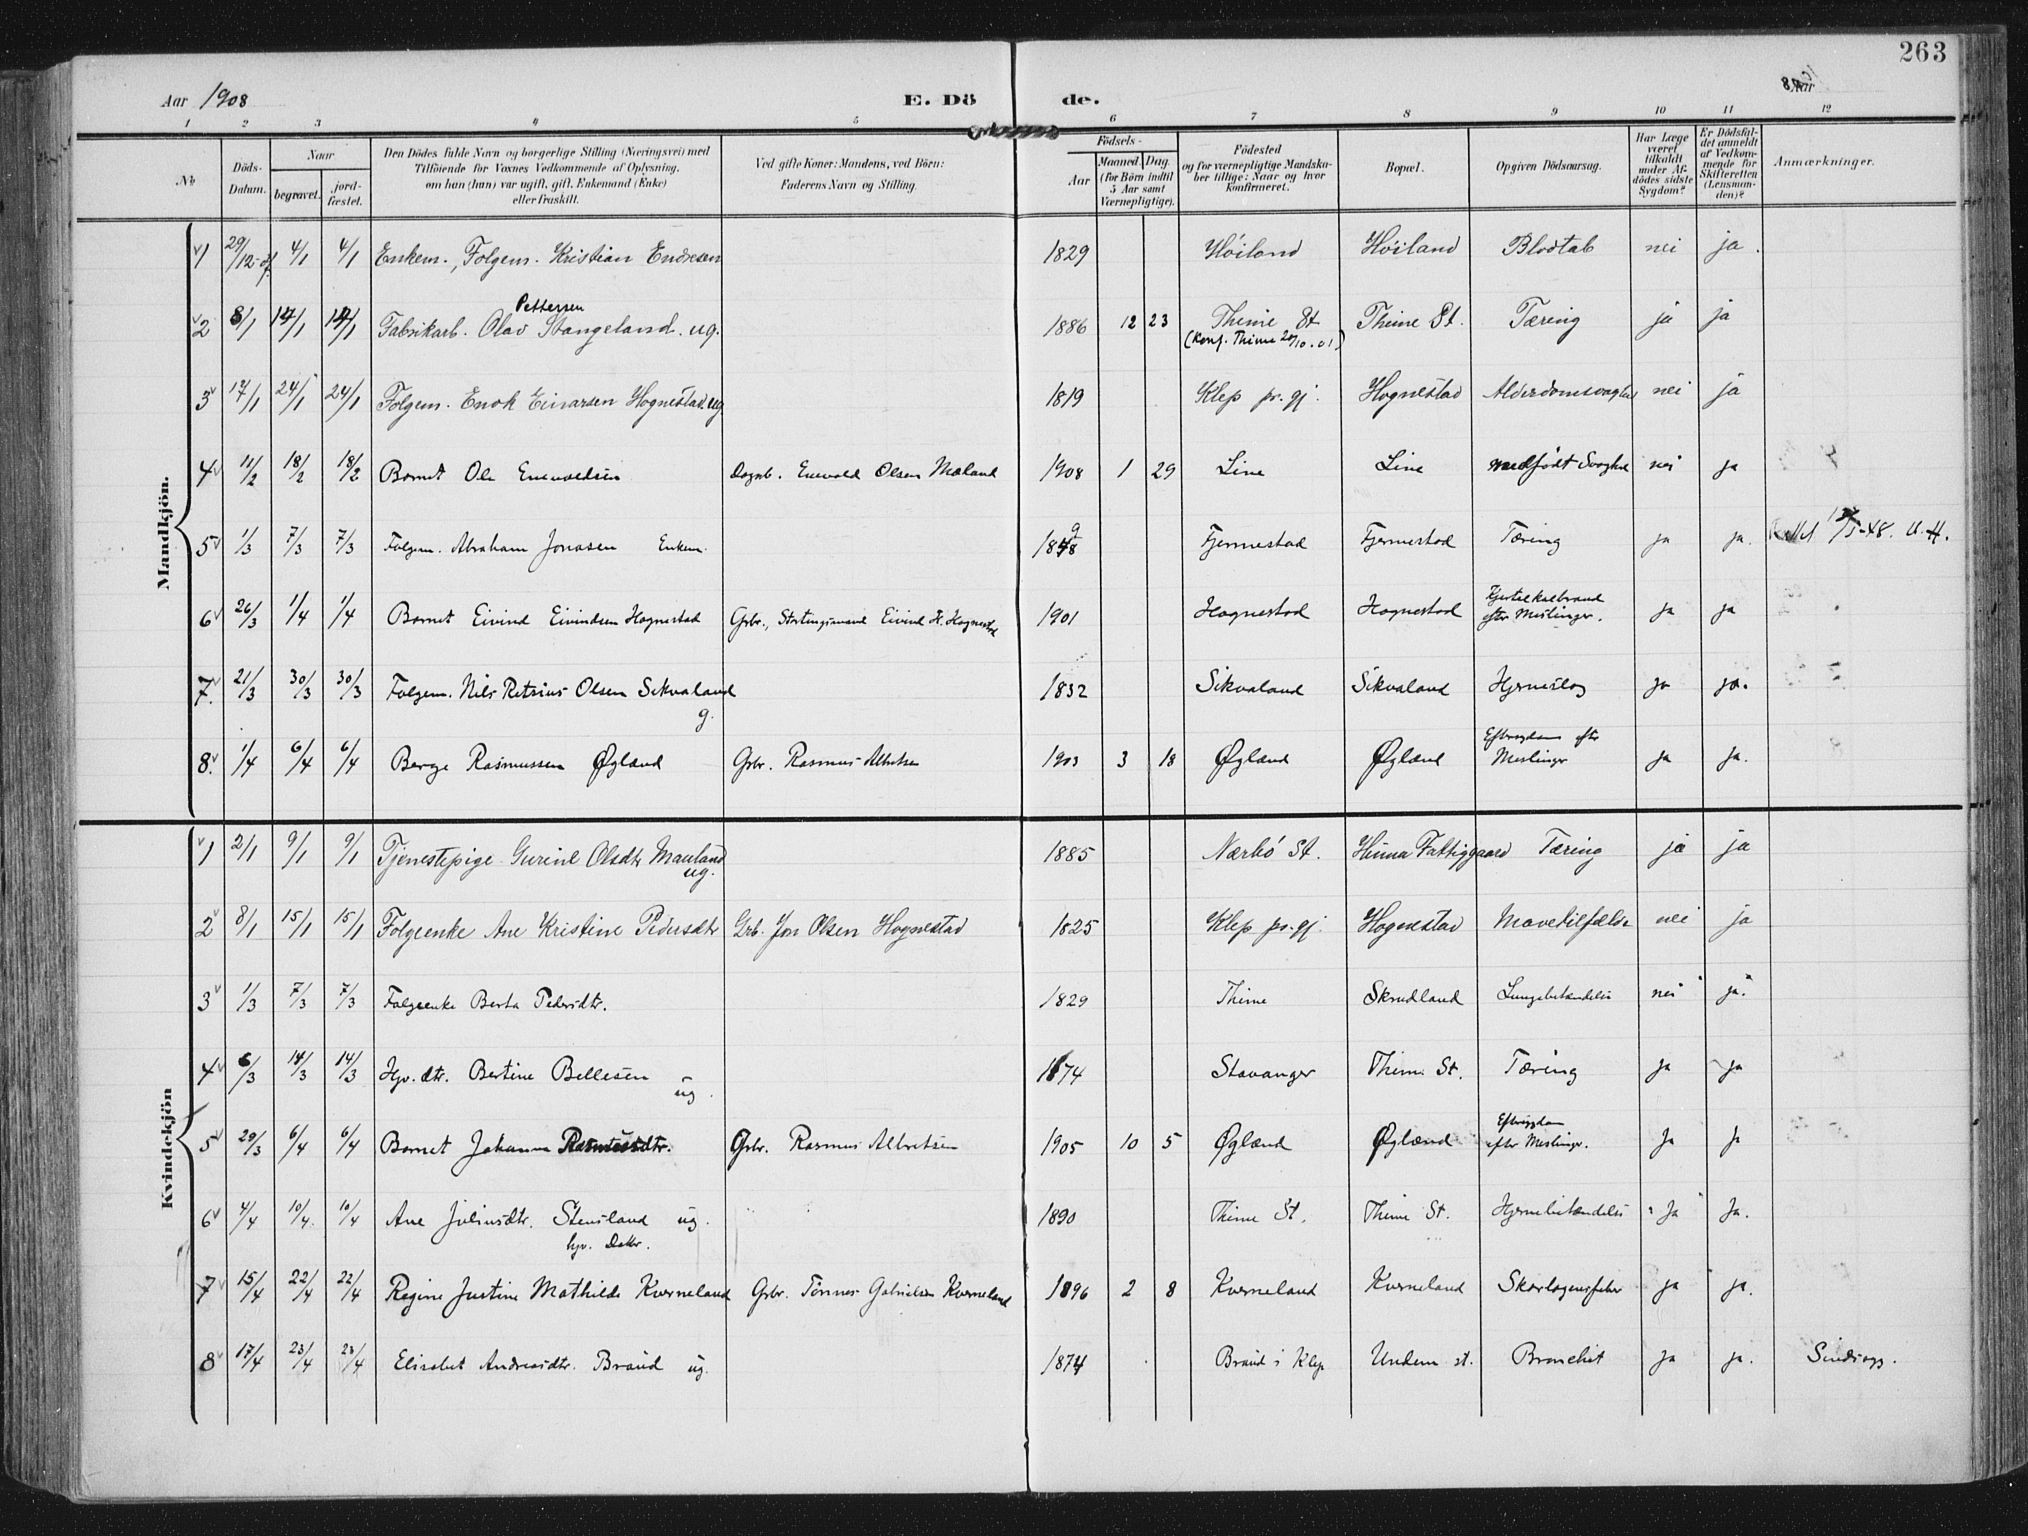 263
Aar 1908 E. Dö de. Aar 1908
1 2 3 4 5 6 7 8 9 10 11 12
No
Döds-Datum.
Naar
begravet.
jordfæstet.
Den Dödes fulde Navn og borgerlige Stilling (Næringsvei) med
Tilföiende for Voxnes Vedkommende af Oplysning,
om han (hun) var ugift, gift, Enkemand (Enke)
eller fraskilt.
Ved gifte Koner: Mandens, ved Börn:
Faderens Navn og Stilling.
Födsels-
Aar
Maaned. Dag.
(for Börn indtil
5 Aar samt
Værnepligtige).
Födested
og for værnepligtige Mandskaber tillige: Naar og hvor
konfirmeret.
Bopæl.
Opgiven Dödsaarsag.
Har Læge
været
tilkaldt
under Afdödes sidste
Sygdom?
Er Dödsfaldet anmeldt
af Vedkommende for
Skifteretten
(Lensmanden)?
Anmærkninger.
Mandkjön.
1 29/12-07 4/1 4/1 Enkem., Folgem. Kristian Endresen 1829 Höiland Höiland Blodtab nei ja.
2 8/1 14/1 14/1 Fabrikarb. Olav Pettersen Stangeland. ug. 1886 12 23 Thime St (Konf. Thime 20/10.01) Thime St. Tæring ja ja
3 17/1 24/1 24/1 Folgem. Enok Einarsen Hognestad. ug 1819 Klep pr.gj. Hognestad Alderdomssvaghed nei ja
4 11/2 18/2 18/2 Barnet Ole Enevoldsen Dagarb. Enevold Olsen Mæland 1908 1 29 Line Line medfödt Svaghed nei ja
5 1/3 7/3 7/3 Folgem. Abraham Jonasen Enkem. 1848 9 Fjermestad Fjermestad Tæring ja ja. 5-48. U.H.
6 26/3 1/4 1/4 Barnet Eivind Eivindsen Hognestad Grbr., Stortingsmand Eivind H. Hognestad 1901 Hognestad Hognestad efter Meslinger. ja ja
7. 21/3 30/3 30/3 Folgem. Nils Retsius Olsen Sikvaland g. 1832 Sikvaland Sikvaland Hjerneslag ja ja.
8. 1/4 6/4 6/4 Berge Rasmussen Øglænd Grbr. Rasmus Albretsen 1903 3 18 Øglænd Øglænd Eftersygdom efter Meslinger ja ja.
Kvindekjön
1 2/1 9/1 9/1 Tjenestepige Gurine Olsdtr Mauland ug. 1885 Nærbö St. Hinna Fattiggaard Tæring ja ja
2 8/1 15/1 15/1 Folgeenke Ane Kristine Pedersdtr Grb. Jon Olsen Hognestad 1825 Klep pr.gj. Hognestad Mavetilfælde nei ja
3 1/3 7/3 7/3 Folgeenke Berta Pedersdtr. 1829 Thime Skrudland Lungebetændelse nei ja.
4 6/3 14/3 14/3 Hjv. dtr. Bertine Bellesen ug. 1874 Stavanger Thime St. Tæring ja ja
5 29/3 6/4 6/4 Barnet Johanna Rasmusdtr. Grbr. Rasmus Albretsen 1905 10 5 Øglænd Øglænd Eftersygdom efter Meslinger. ja ja
6 4/4 10/4. 10/4 Ane Juliusdtr. Stensland ug. hjv. Datter. 1890 Thime St. Thime St. Hjernebetændelse ja ja.
7 15/4 22/4 22/4 Regine Justine Mathilde Kverneland Grbr. Tönnes Gabrielsen Kverneland 1896 2 8 Kverneland Kverneland Skarlagensfeber ja ja.
8 17/4 23/4 23/4 Elisabet Andreasdtr. Braud ug. 1874 Braud i Klep Undem st. Bronchit ja ja. Sindssyg.